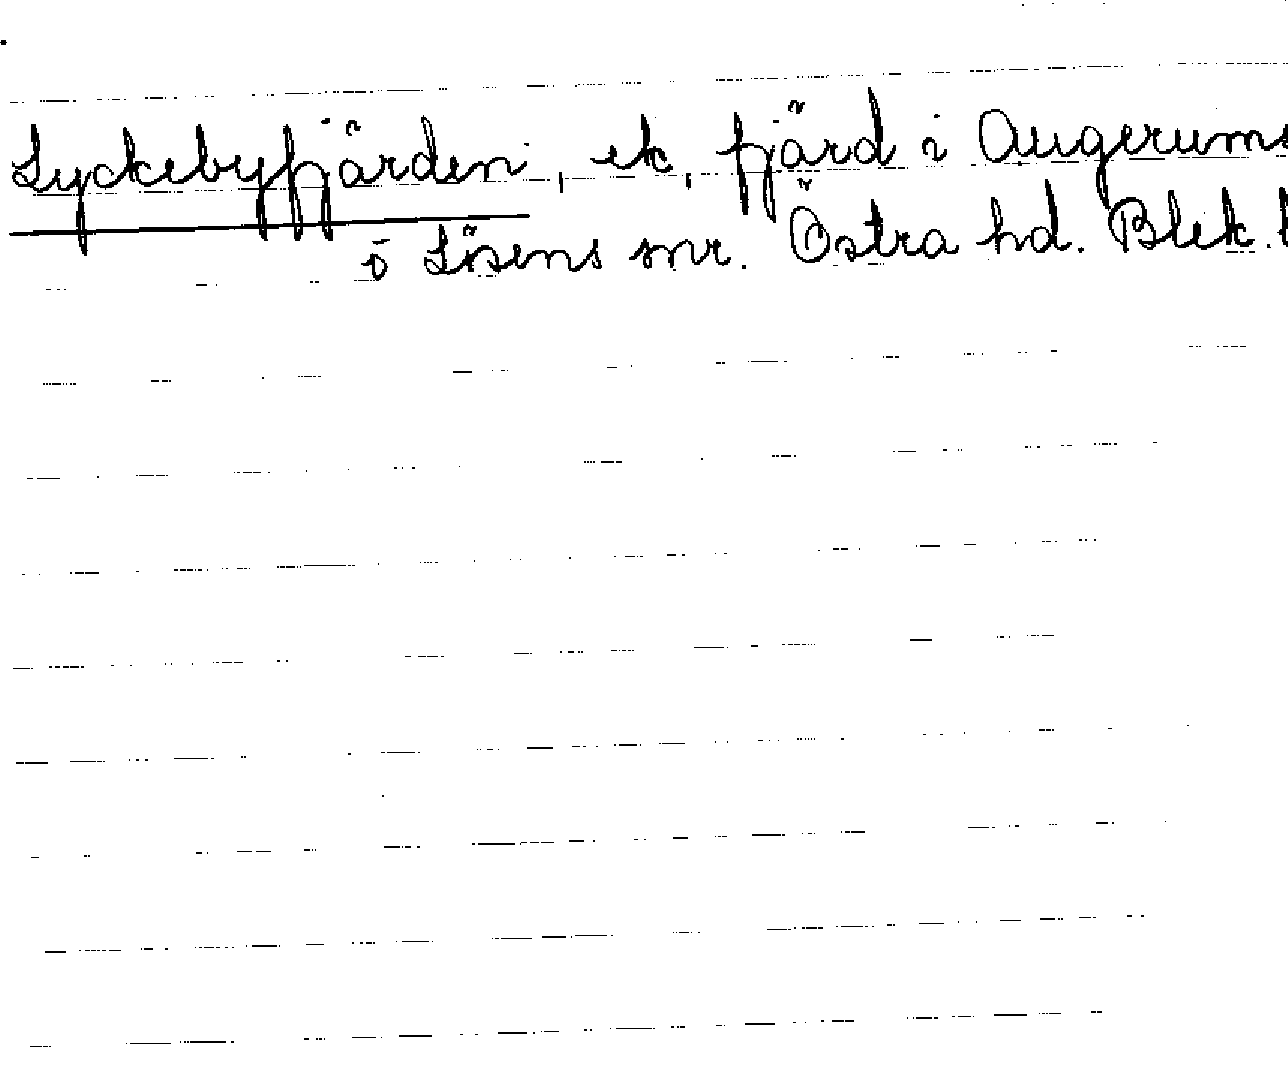 Lyckebyfjärden, ek, fjärd i Augerums
o Lösens snr. Östra hd. Blek. l